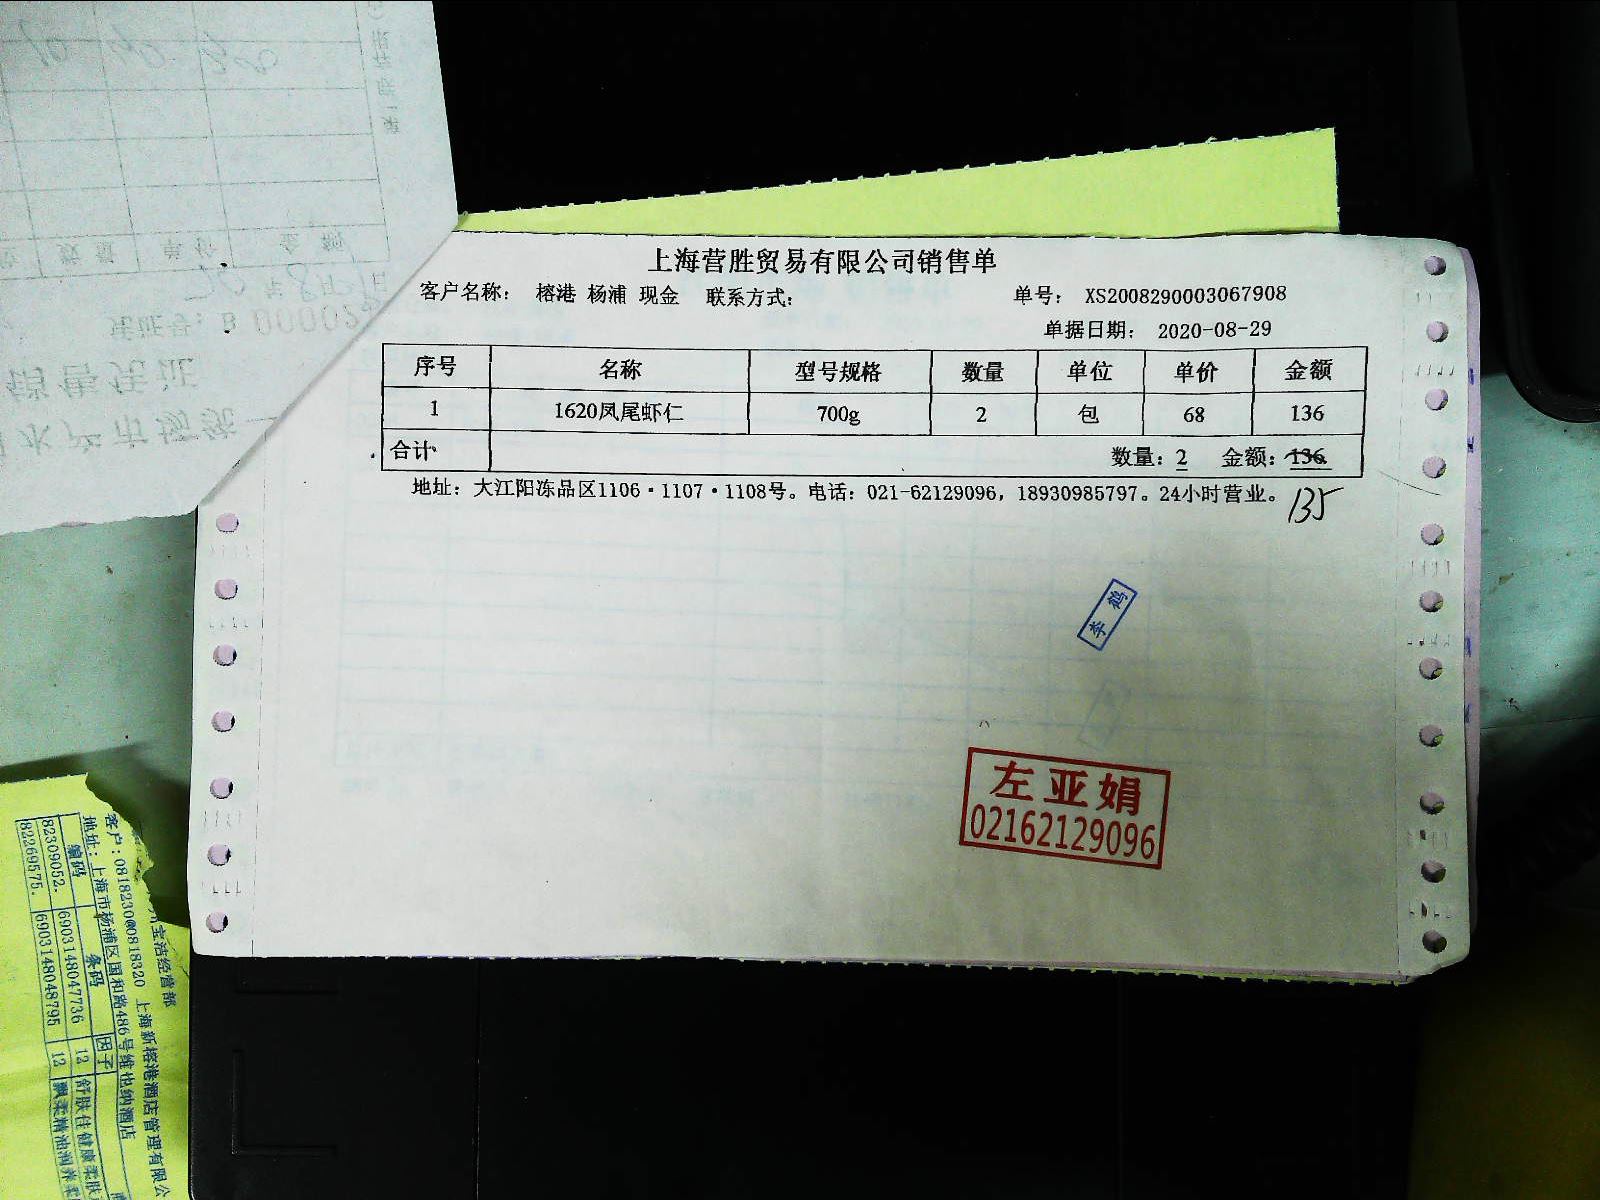 上海营胜贸易有限公司销售单
客户名称： 榕港 杨浦 现金 联系方式： 单号： XS2008290003067908
单据日期： 2020-08-29
序号 名称 型号规格 数量 单位 单价 金额
1 1620凤尾虾仁 700g 2 包 68 136
合计 数量：2 金额：136
地址：大江阳冻品区1106·1107·1108号。电话：021-62129096，18930985797。24小时营业。
135
李 鹤
左亚娟
02162129096
宝洁经营部
客户：0818230@0818320 上海新榕港酒店管理有限公
地址：上海市杨浦区国和路486号维也纳酒店
编码 条码 因子
82309052. 6903148047736 12 舒肤佳健康柔肤
82269575. 6903148048795 12 飘柔精油润养柔
数量 单价 金额
凭证号：B 000002
销售凭证
水产市场统一